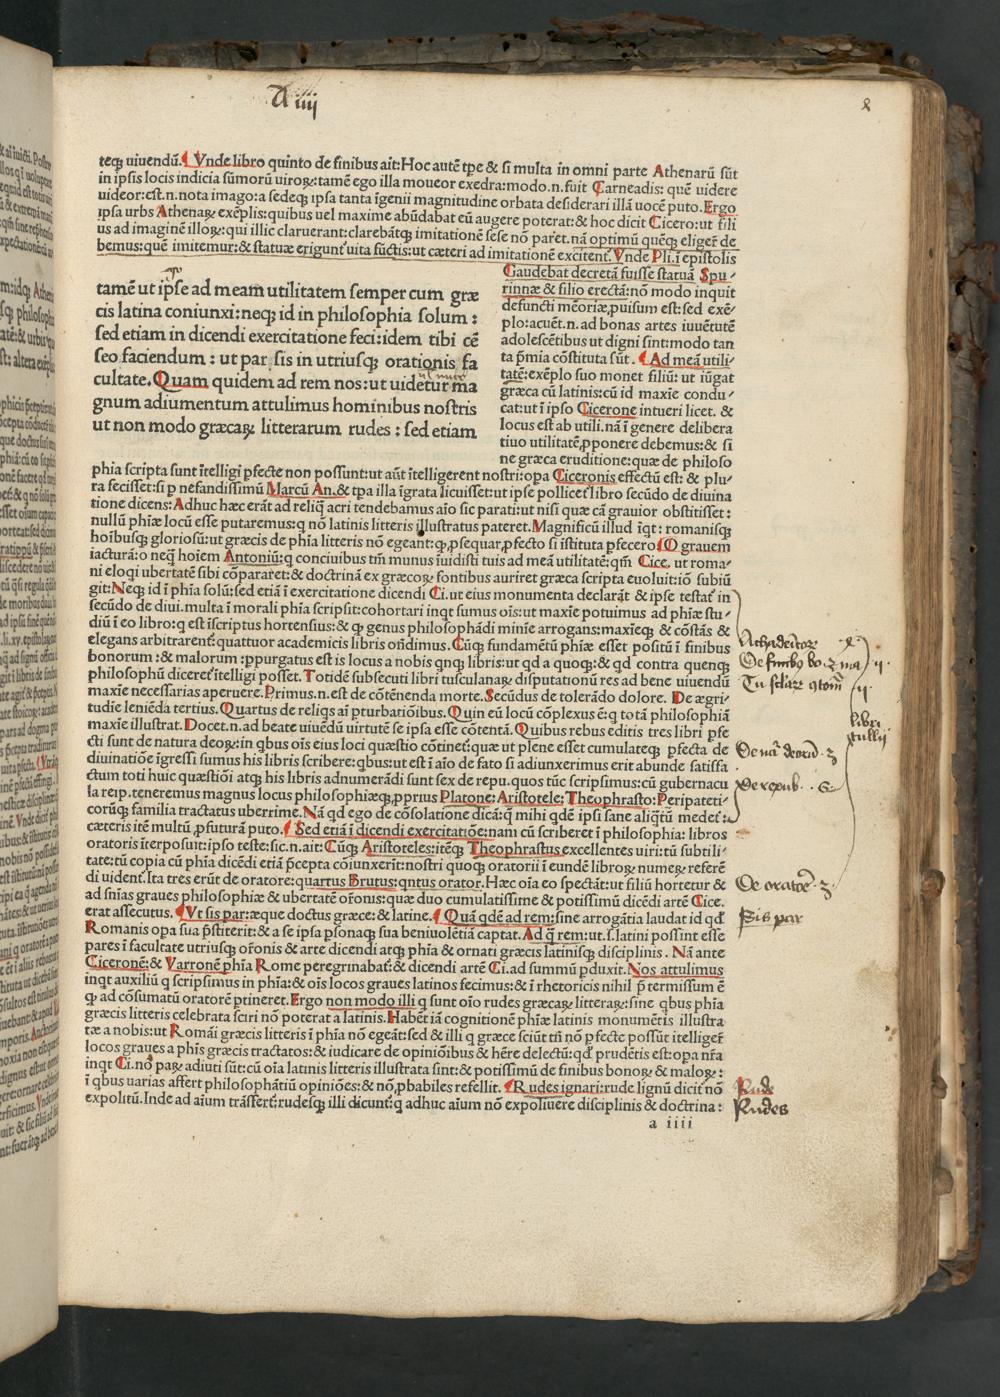 A iiii
teqʒ uiuendū. Vnde libro quinto de finibus ait: Hoc autē tpe & si multa in omni parte Athenarū sūt
in ipsis locis indicia sūmorū uiroꝝ: tamē ego illa moueor exedra: modo.n.fuit Carneadis: quē uidere
uideor: est.n.nota imago: a sedeqʒ ipsa tanta īgenii magnitudine orbata desiderari illā uocē puto. Ergo
ipsa urbs Athenaꝝ exēplis: quibus uel maxime abūdabat eū augere poterat: & hoc dicit Cicero: ut fili
us ad imaginē illoꝝ: qui illic claruerant: clarebātqʒ imitationē sese nō paret. nā optimū quēqʒ eligeɼ de
bemus: quē imitemur: & statuæ erigunt̄ uita fūctis: ut cæteri ad imitationē excitent̄. Vnde Pli. ī epistolis
Gaudebat decretā fuisse statuā Spu-
rinnæ & filio erectā: nō modo inquit
defuncti mēoriæ, puisum est: sed exē-
plo: acuēt.n.ad bonas artes iuuētutē
adolescētibus ut digni sint: modo tan
ta p̄mia cōstituta sūt. Ad meā utili-
tatē: exēplo suo monet filiū: ut iūgat
græca cū latinis: cū id maxie condu-
cat: ut ī ipso Cicerone intueri licet. &
locus est ab utili. nā ī genere delibera
tiuo utilitatē, pponere debemus: & si
ne græca eruditione: quæ de philoso
tamē ut ipse ad meam utilitatem semper cum græ
cis latina coniunxi: neqʒ id in philosophia solum:
sed etiam in dicendi exercitatione feci: idem tibi cē
seo faciendum: ut par sis in utriusqʒ orationis fa
cultate. Quam quidem ad rem nos: ut uidetur ma
gnum adiumentum attulimus hominibus nostris
ut non modo græcaꝝ litterarum rudes: sed etiam
phia scripta sunt ītelligi pfecte non possunt: ut aūt ītelligerent nostri: opa Ciceronis effectū est: & plu-
ra fecisset: si p nefandissimū Marcū An. & tpa illa īgrata licuisset: ut ipse pollicet̄ libro secūdo de diuina
tione dicens: Adhuc hæc erāt ad reliq̄ acri tendebamus aīo sic parati: ut nisi quæ cā grauior obstitisset:
nullū phiæ locū esse putaremus: q nō latinis litteris illustratus pateret. Magnificū illud īqt: romanisqʒ
hoībusqʒ gloriosū: ut græcis de phīa litteris nō egeant: qʒ, psequar, pfecto si īstituta pfecero. O grauem
iacturā: o neqʒ hoīem Antoniū: q conciuibus tm̄ munus iuidisti tuis ad meā utilitatē: qm̄ Cice. ut roma-
ni eloqi ubertatē sibi cōpararet: & doctrinā ex græcoꝝ fontibus auriret græca scripta euoluit: iō subiū
git: Neqʒ id ī phīa solū: sed etiā ī exercitatione dicendi Ci. ut eius monumenta declarāt & ipse testat̄ in
secūdo de diui. multa ī morali phīa scripsit: cohortari inqt sumus oīs: ut maxīe potuimus ad phiæ stu-
diū ī eo libro: q est īscriptus hortensius: & qʒ genus philosophādi minīe arrogans: maxīeqʒ & cōstās &
elegans arbitrarent̄: quattuor academicis libris oñdimus. Cūqʒ fundamētū phiæ esset positū ī finibus
bonorum: & malorum: ppurgatus est is locus a nobis qnqʒ libris: ut qd a quoqʒ: & qd contra quenqʒ
philosophū diceret̄ ītelligi posset. Totidē subsecuti libri tusculanaꝝ disputationū res ad bene uiuendū
maxīe necessarias aperuere. Primus.n.est de cōtēnenda morte. Secūdus de tolerādo dolore. De ægri-
tudīe lenīēda tertius. Quartus de reliqs aī pturbatiōibus. Quin eū locū cōplexus ē: q totā philosophiā
maxīe illustrat. Docet.n.ad beate uiuēdū uirtutē se ipsa esse cōtentā. Quibus rebus editis tres libri pfe
cti sunt de natura deoꝝ: in qbus oīs eius loci quæstio cōtinet̄: quæ ut plene esset cumulateqʒ pfecta de
diuinatiōe īgressi sumus his libris scribere: qbus: ut est ī aīo de fato si adiunxerimus erit abunde satisfa
ctum toti huic quæstiōi atqʒ his libris adnumerādi sunt sex de repu. quos tūc scripsimus: cū gubernacu
la reip. teneremus magnus locus philosophiæqʒ, pprius Platone: Aristotele: Theophrasto: Peripateti-
corūqʒ familia tractatus uberrime. Nā qd ego de cōsolatione dicā: q mihi qdē ipsi sane aliqtū medet̄:
cæteris itē multū, pfuturā puto. Sed etiā ī dicendi exercitatiōe: nam cū scriberet ī philosophia: libros
oratoris īterposuit: ipso teste: sic.n.ait: Cūqʒ Aristoteles: itēqʒ Theophrastus excellentes uiri: tū subtili-
tate: tū copia cū phīa dicēdi etiā p̄cepta cōiunxerīt: nostri quoqʒ oratorii ī eundē libroꝝ numeꝝ referē
di uident̄. Ita tres erūt de oratore: quartus Brutus: qntus orator. Hæc oīa eo spectāt: ut filiū hortetur &
ad sñias graues philosophiæ & ubertatē orōnis: quæ duo cumulatissime & potissimū dicēdi artē Cice.
erat assecutus. Vt sis par: æque doctus græce: & latine. Quā qdē ad rem: sine arrogātia laudat id qd
Romanis opa sua p̄stiterit: & a se ipsa psonaqʒ sua beniuolētiā captat. Ad q̄ rem: ut.s.latini possint esse
pares ī facultate utriusqʒ orōnis & arte dicendi atqʒ phīa & ornati græcis latinisqʒ disciplinis. Nā ante
Ciceronē: & Varronē phīa Rome peregrinabat̄: & dicendi artē Ci. ad summū pduxit. Nos attulimus
inqt auxiliū q scripsimus in phīa: & oīs locos graues latinos fecimus: & ī rhetoricis nihil p̄termissum ē
qʒ ad cōsumatū oratorē ptineret. Ergo non modo illi q sunt oīo rudes græcaꝝ litteraꝝ: sine qbus phīa
græcis litteris celebrata sciri nō poterat a latinis. Habēt iā cognitionē phiæ latinis monumētis illustra
tæ a nobis: ut Romāi græcis litteris ī phīa nō egeāt: sed & illi q græce sciūt tm̄ nō pfecte possūt itelligeɼ
locos graues a phīs græcis tractatos: & iudicare de opiniōibus & hēre delectū: qd prudētis est: opa nr̄a
inqt Ci. nō paꝝ adiuti sūt: cū oīa latinis litteris illustrata sint: & potissimū de finibus bonoꝝ & maloꝝ:
ī qbus uarias affert philosophātiū opiniōes: & nō, pbabiles refellit. Rudes ignari: rude lignū dicit̄ nō
expolitū. Inde ad aīum trāsfert̄: rudesqʒ illi dicunt̄: q adhuc aīum nō expoliuere disciplinis & doctrina:
a iiii
De natā deorū. 3
De repub. 6
libri
tullii
De oratoē. 3
Sis par
Rude
Rudes